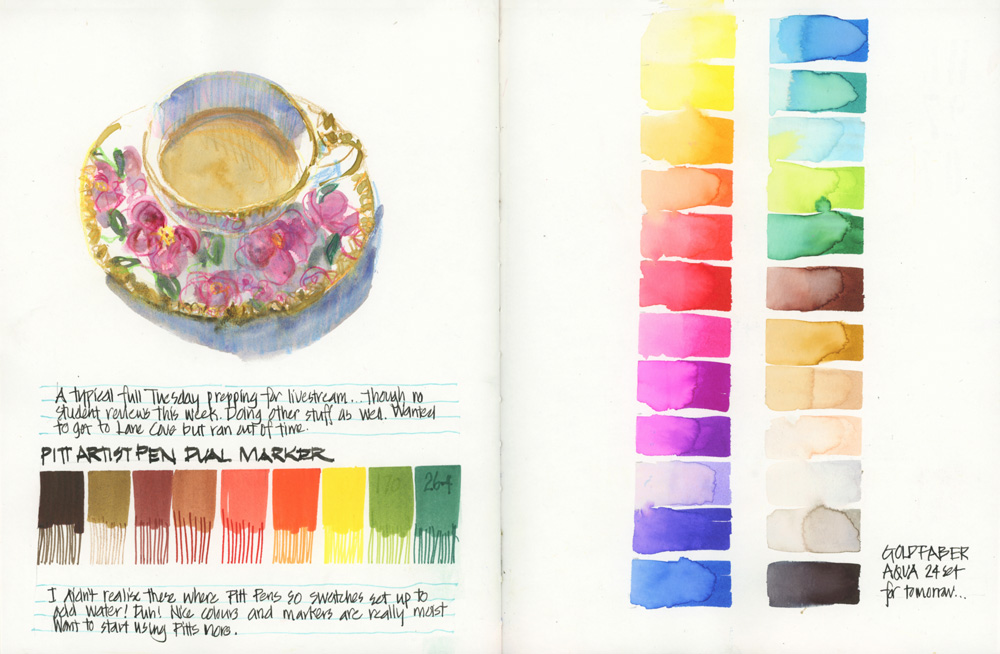 A typical full Tuesday prepping for livestream... though no
student reviews this week. Doing other stuff as well. Wanted
to got to Lane Cove but ran out of time.
PITT ARTIST PEN DUAL MARKER
264
I didn't realise these where Pitt Pens so swatches set up to
add water! Duh! Nice colours and markers are really moist
Want to start using Pitts more.
GOLDFABER
AQUA 24 set
for tomorrow...